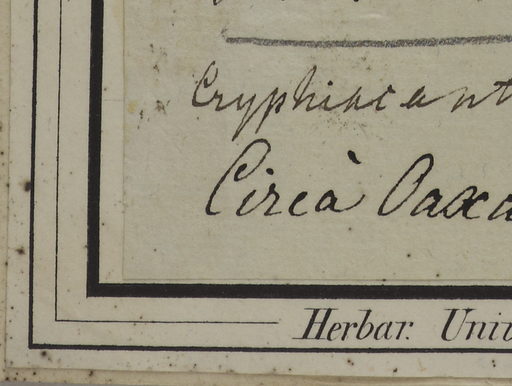 Cryphiacant
Circà Oaxa
Herbar. Univ